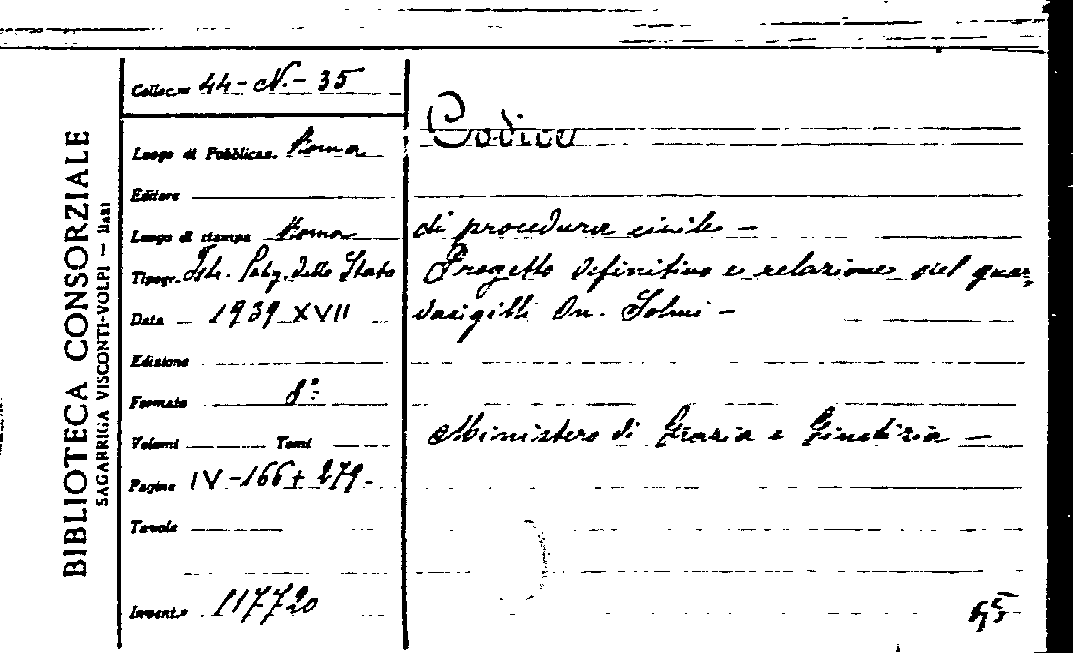 BIBLIOTECA CONSORZIALE
SAGARRIGA VISCONTI-VOLPI — BARI
Colloc.ne 44 - N. - 35
Luogo di Pubblicaz. Roma
Editore
Luogo di stampa Roma
Tipogr. Ist. Polig. dello Stato
Data 1939 XVII
Edizione
Formato 8°
Volumi Tomi
Pagine IV - 166 + 279 -
Tavole
Invent.o 117720
Codice
di procedura civile —
Progetto definitivo e relazione del guar-
dasigilli On. Solmi —
Ministero di Grazia e Giustizia —